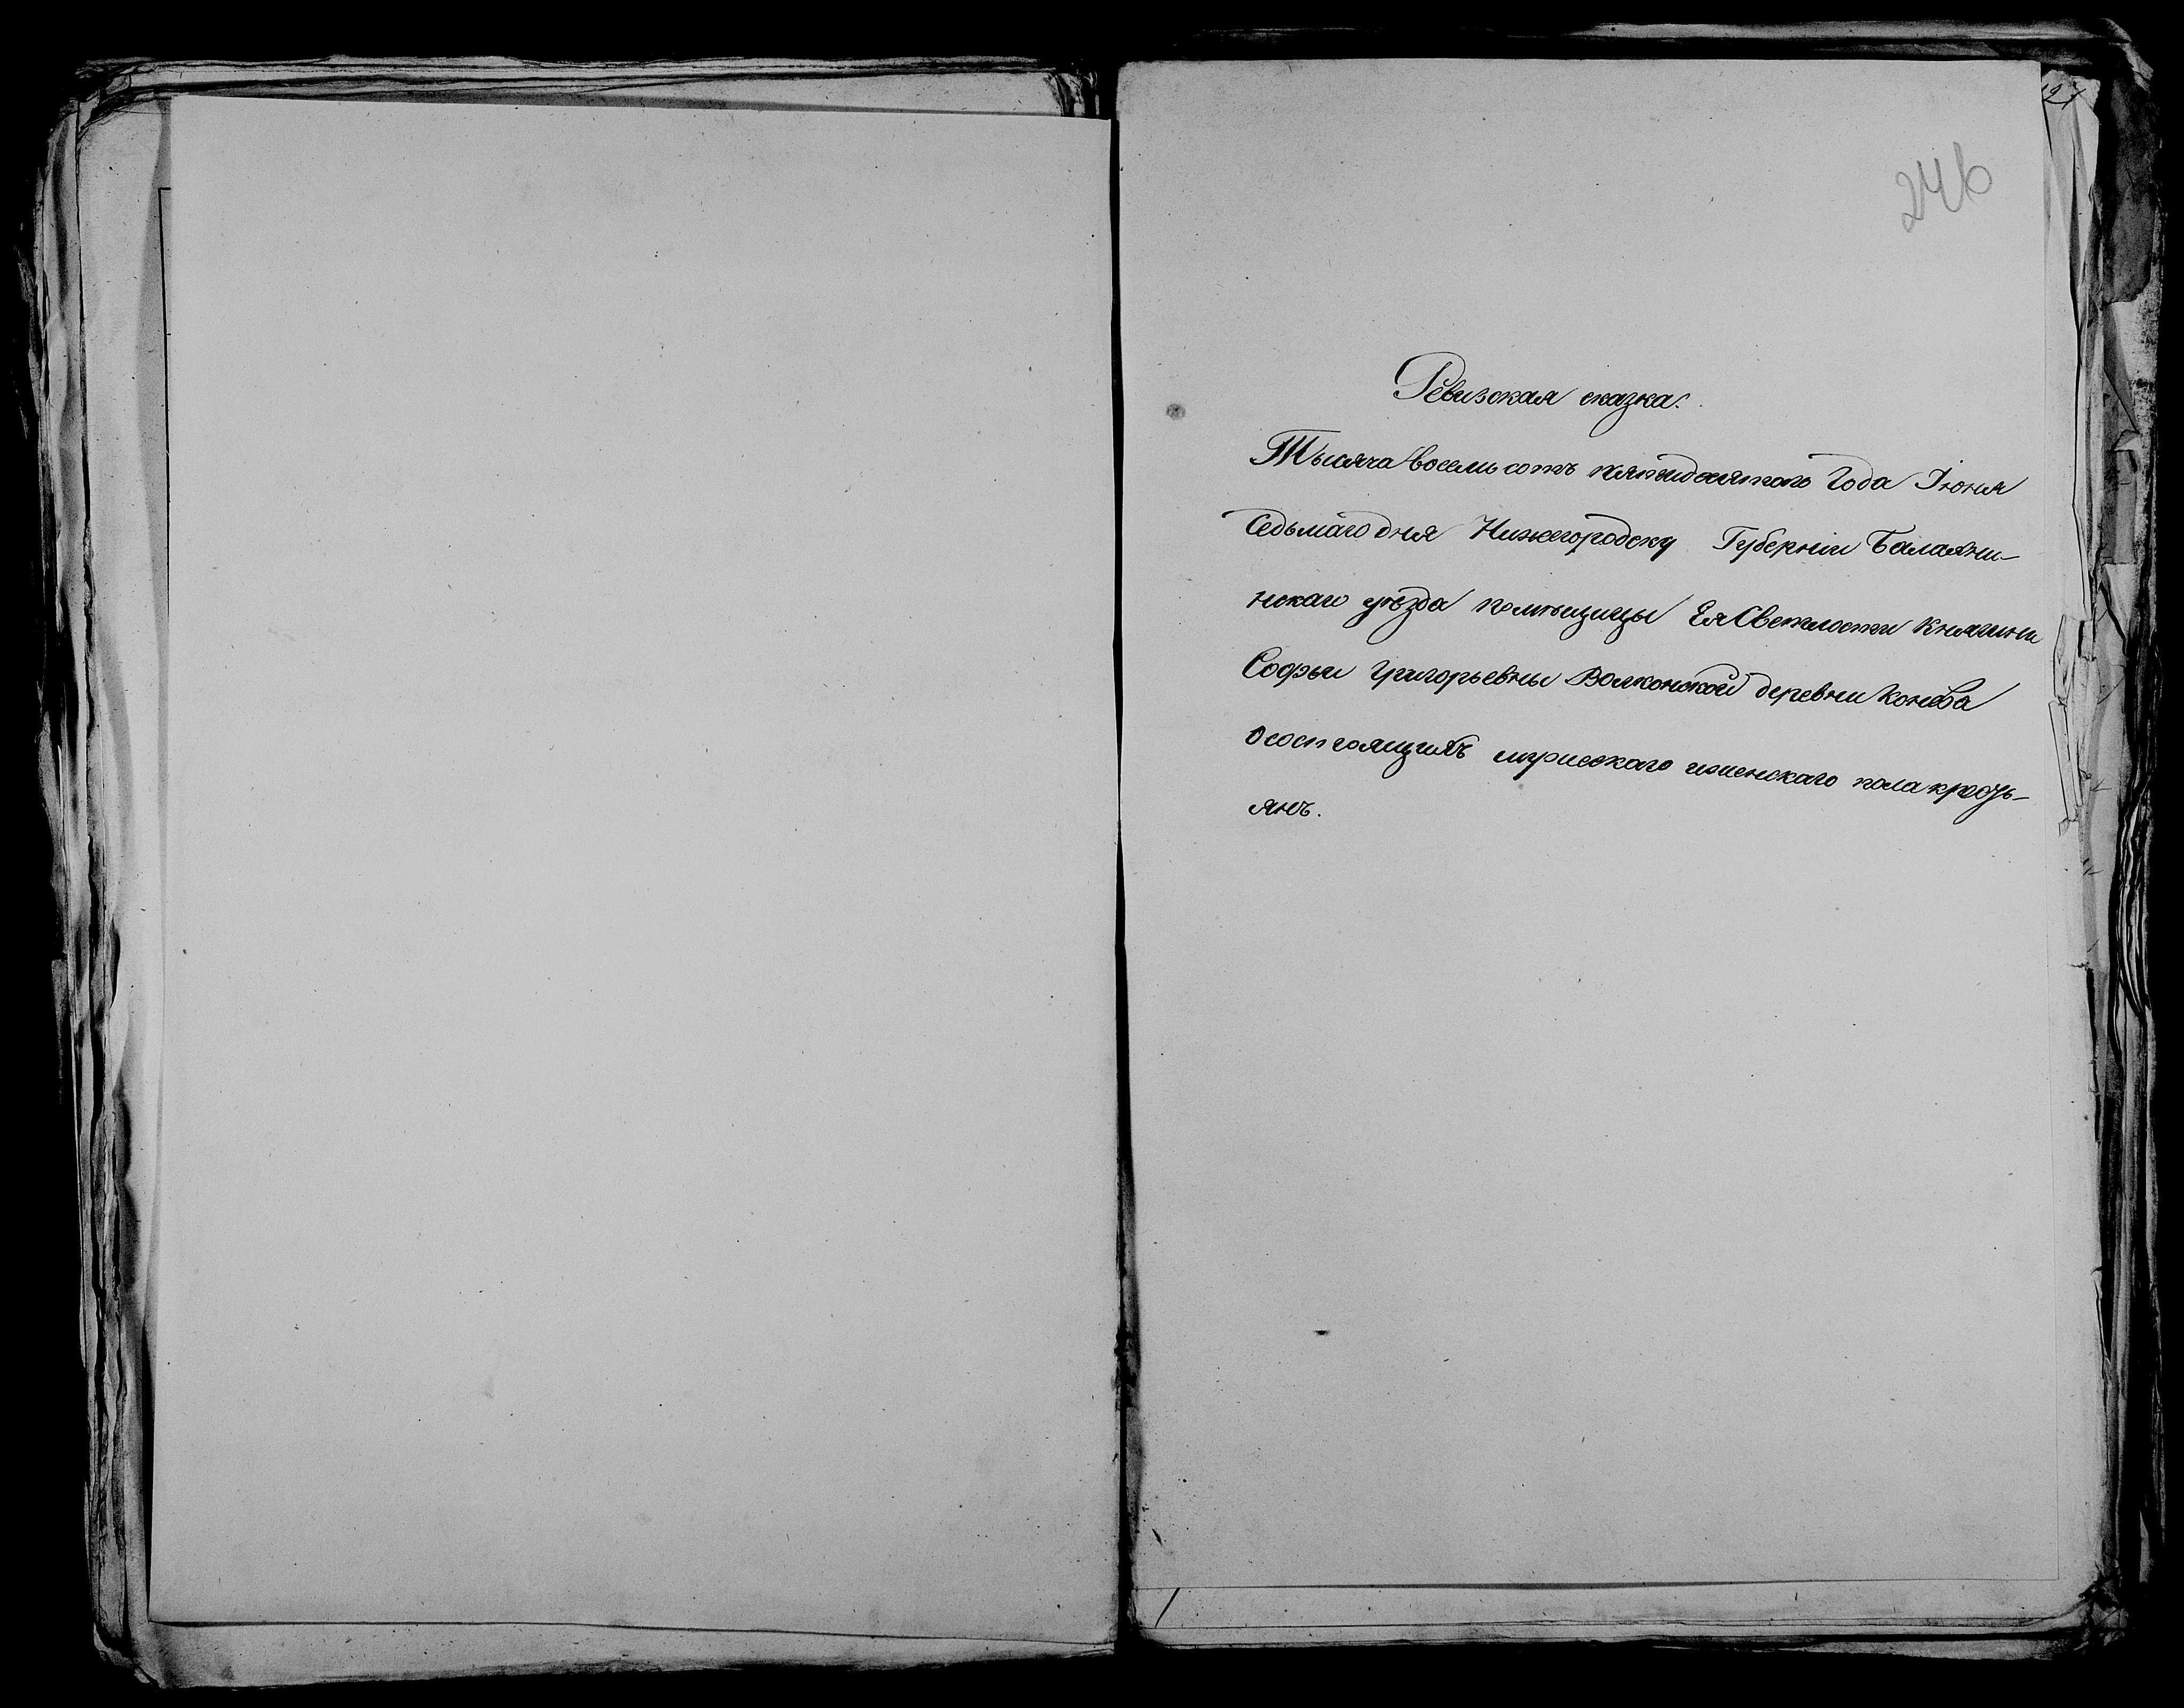 246
Ревизская сказка.
Тысяча восемь сотъ пятидесятого Года Іюня
Седьмаго дня Нижегородску Губерніи Балахни-
нскаго уѣзда помѣщицы Ея Светлости Княгини
Софьи Григорьевны Волконской деревни Конева
осостоящихъ мужескаго иженскаго пола кресть-
янъ.